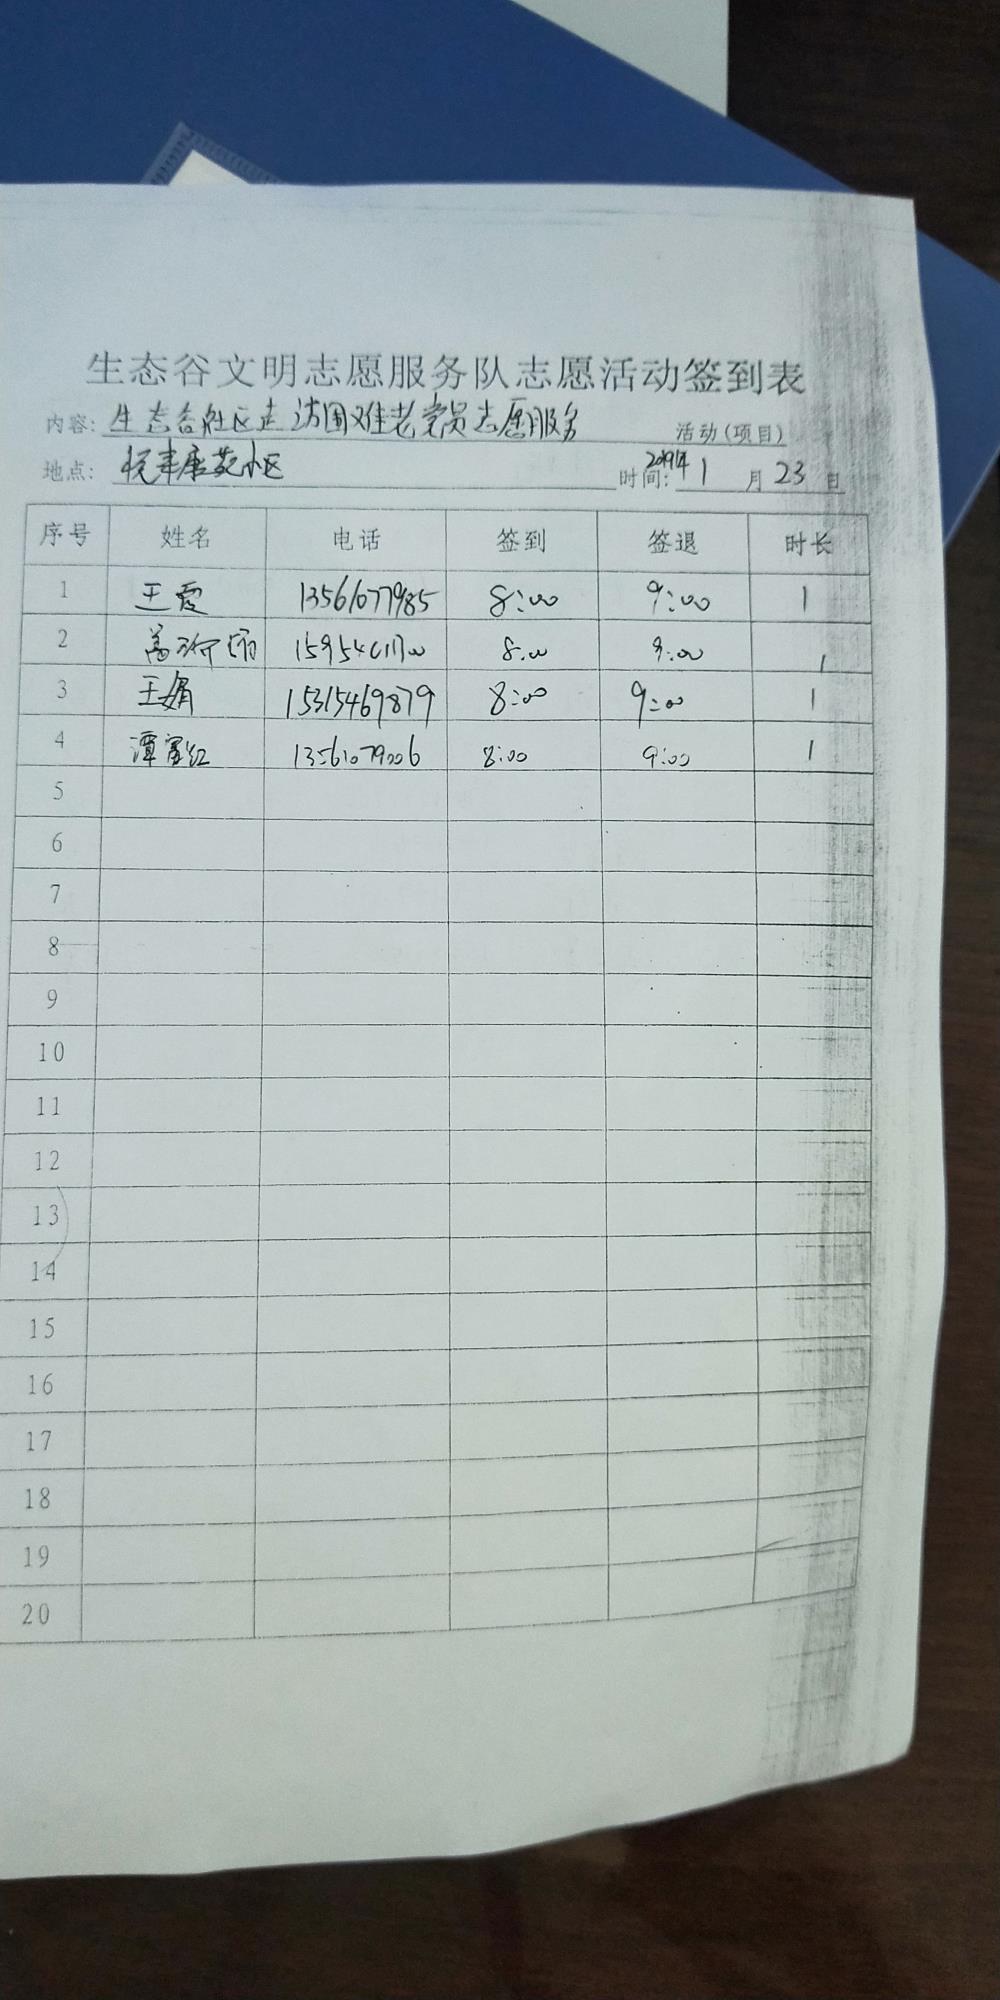 生态谷文明志愿服务队志愿活动签到表
内容: 生态谷社区走访困难老党员志愿服务 活动(项目)
地点: 悦丰康苑小区 时间: 2019年 1 月 23 日
序号 姓名 电话 签到 签退 时长
1 王霞 13561077985 8:00 9:00 1
2 8:00 9:00 1
3 王娟 15315469879 8:00 9:00 1
4 谭富红 13561079006 8:00 9:00 1
5
6
7
8
9
10
11
12
13
14
15
16
17
18
19
20